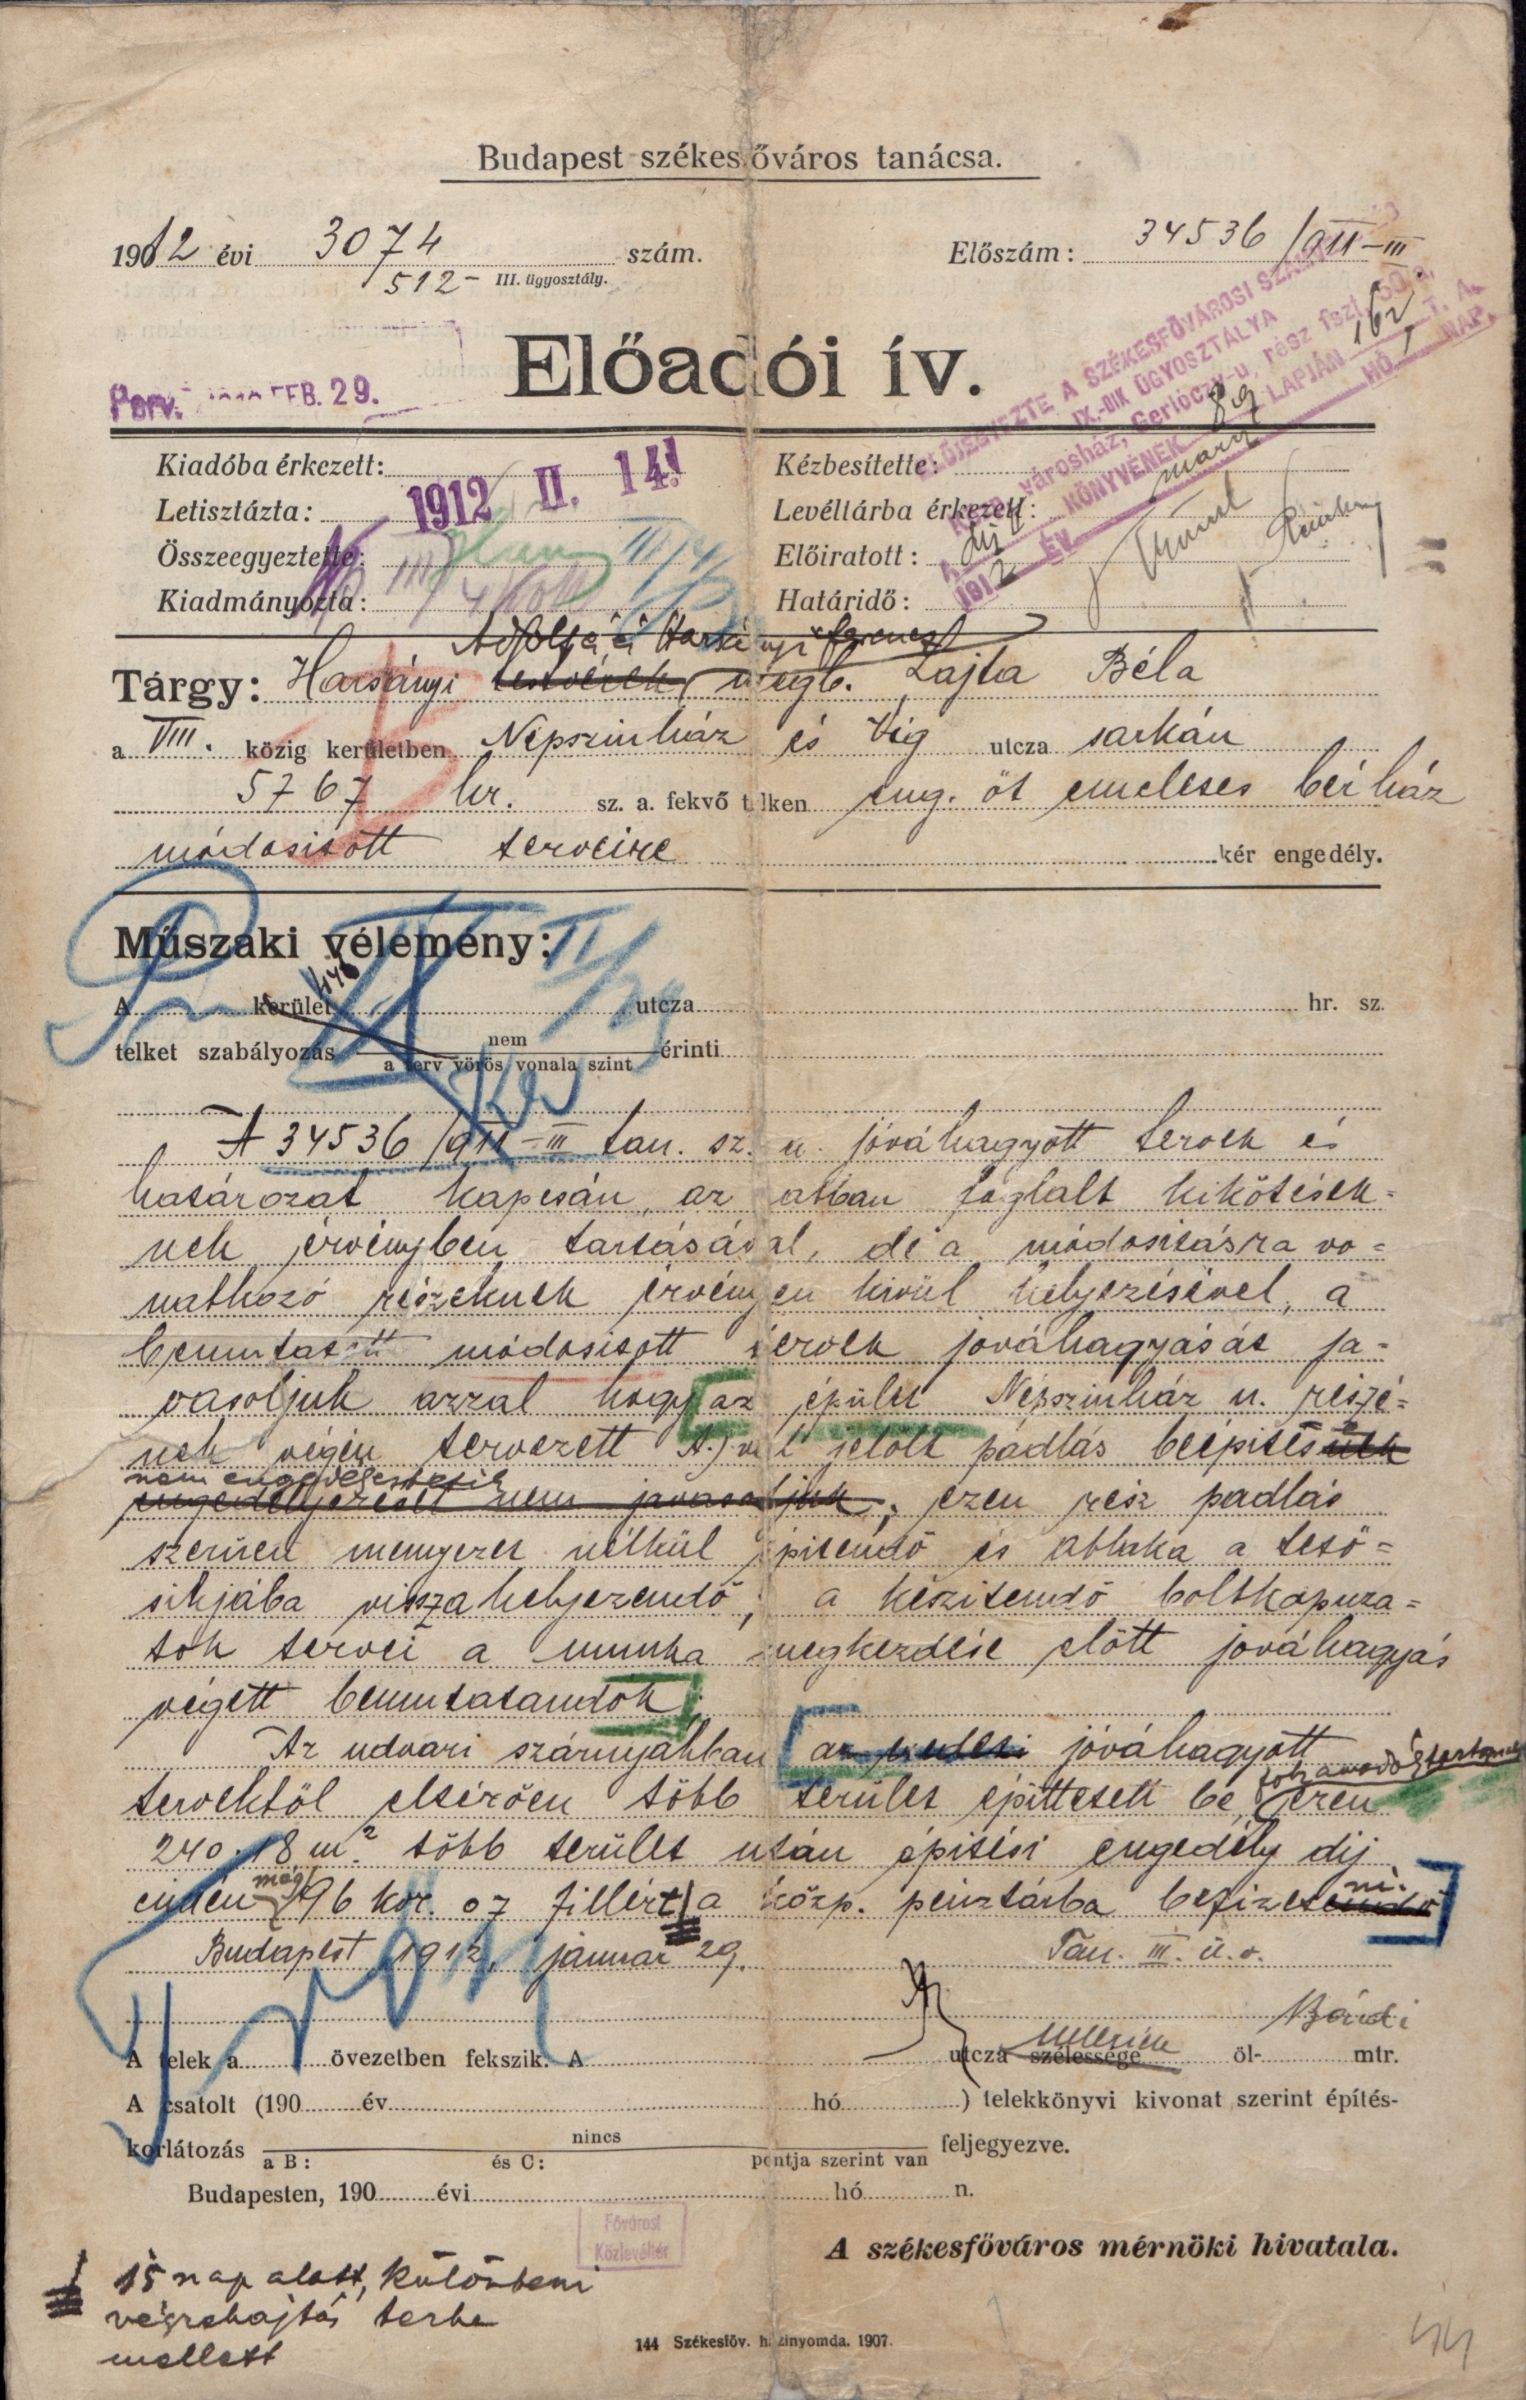 Budapest székesfőváros tanácsa.
1912 évi 3074 szám.
512 – III. ügyosztály.
Előszám: 34536/911–III.
Előadói ív.
FEB. 29.
ELŐJEGYEZTE A SZÉKESFŐVÁROSI
IX.-DIK ÜGYOSZTÁLYA
Városház, Gerlóczy-u, rész fszt. 30 a.
KÖNYVÉNEK 89 LAPJÁN 162 T. A.
1912 ÉV márcz HÓ 1 NAP.
Kiadóba érkezett:
1912 II. 14.
Kézbesítette:
Letisztázta:
Levéltárba érkezett:
Összeegyeztette:
Előiratott:
Kiadmányozta:
Határidő:
Adolf és Harsányi Ferencz
Tárgy: Harsányi testvérek megb. Lajta Béla
a VIII. közig kerületben Népszinház és Vig utcza sarkán
5767 hr. sz. a. fekvő telken eng. öt emeletes bérház
módosított terveire kér engedély.
Műszaki vélemény:
A kerület utcza hr. sz.
telket szabályozás nem érinti
a terv vörös vonala szint
A 34536/911–III tan. sz. a. jóváhagyott tervek és
határozat kapcsán, az abban foglalt kikötések-
nek érvényben tartásával, de a módosításra vo-
natkozó részeknek érvényen kivül helyezésével, a
bemutatott módosított tervek jóváhagyását ja-
vasoljuk azzal hogy az épület Népszinház u. részé-
nek végén tervezett A.)val jelölt padlás beépítésének
nem engedélyeztetik
engedélyezését nem javasoljuk, ezen rész padlás
szerüen menyezet nélkül építendő és ablaka a tető-
sikjába visszahelyezendő; a készitendő boltkapuza-
tok tervei a munka megkezdése előtt jóváhagyás
végett bemutatandók.
Az udvari szárnyakban az eredeti jóváhagyott
tervektől eltérően több terület építtetett be, ezen
240.18 m² több terület után építési engedély díj
címén még 96 kor. 07 fillért a közp. pénztárba befizetendő
Budapest 1912, január 29. Tan. III. ü. o.
Bárdi
A telek a övezetben fekszik. A utcza szélessége öl- mtr.
A csatolt (190 év hó ) telekkönyvi kivonat szerint építés-
korlátozás nincs feljegyezve.
a B: és C: pontja szerint van
Budapesten, 190 évi hó n.
Fővárosi
Közlevéltár
A székesfőváros mérnöki hivatala.
15 nap alatt, különbeni
végrehajtás terhe
mellett
144 Székesföv. házinyomda. 1907.
44